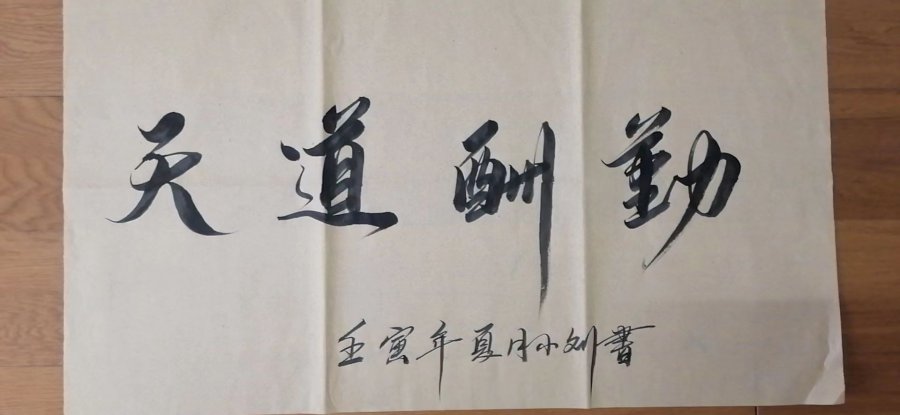 天道酬勤
壬寅年夏月小刘書